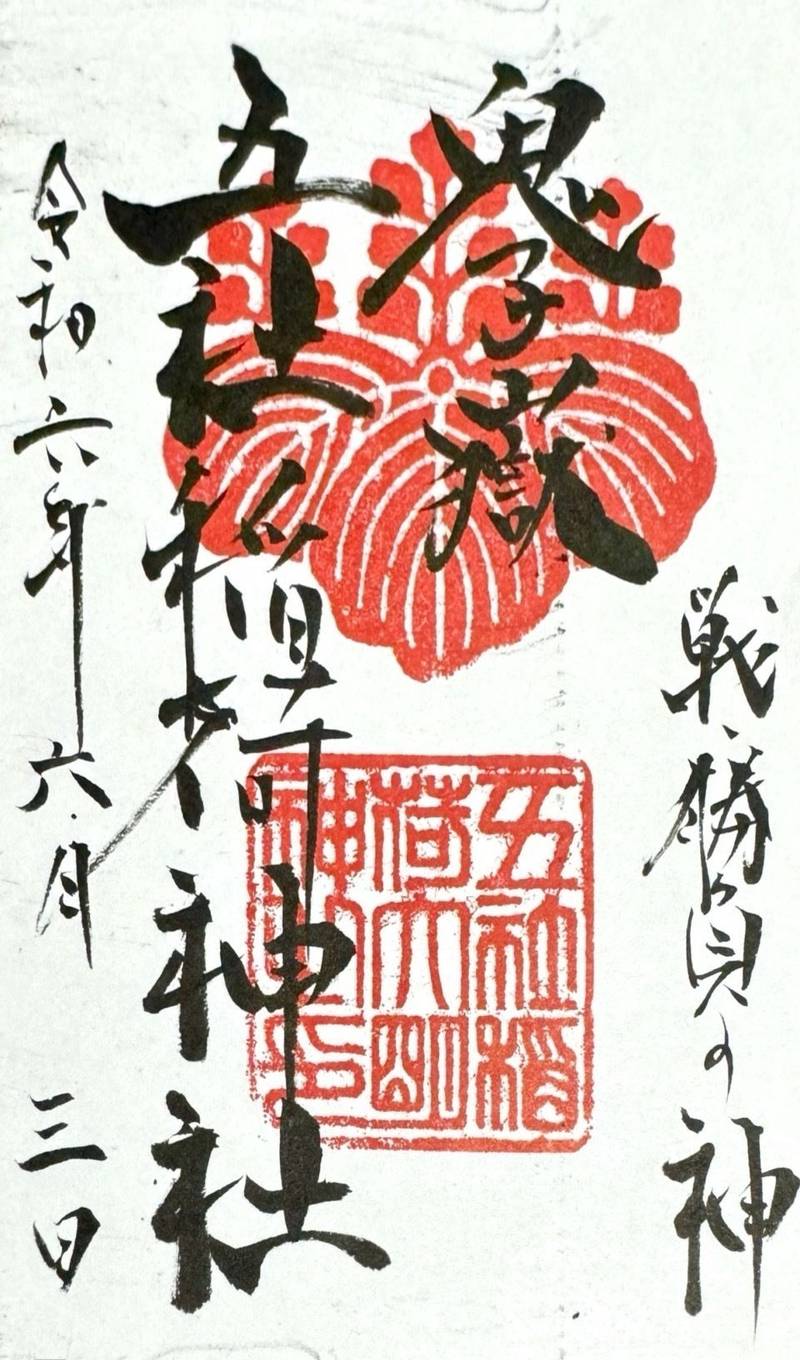 戦勝負の神
鬼子嶽
五社稲荷神社
令和六年六月三日
五社稲
荷大明
神之印